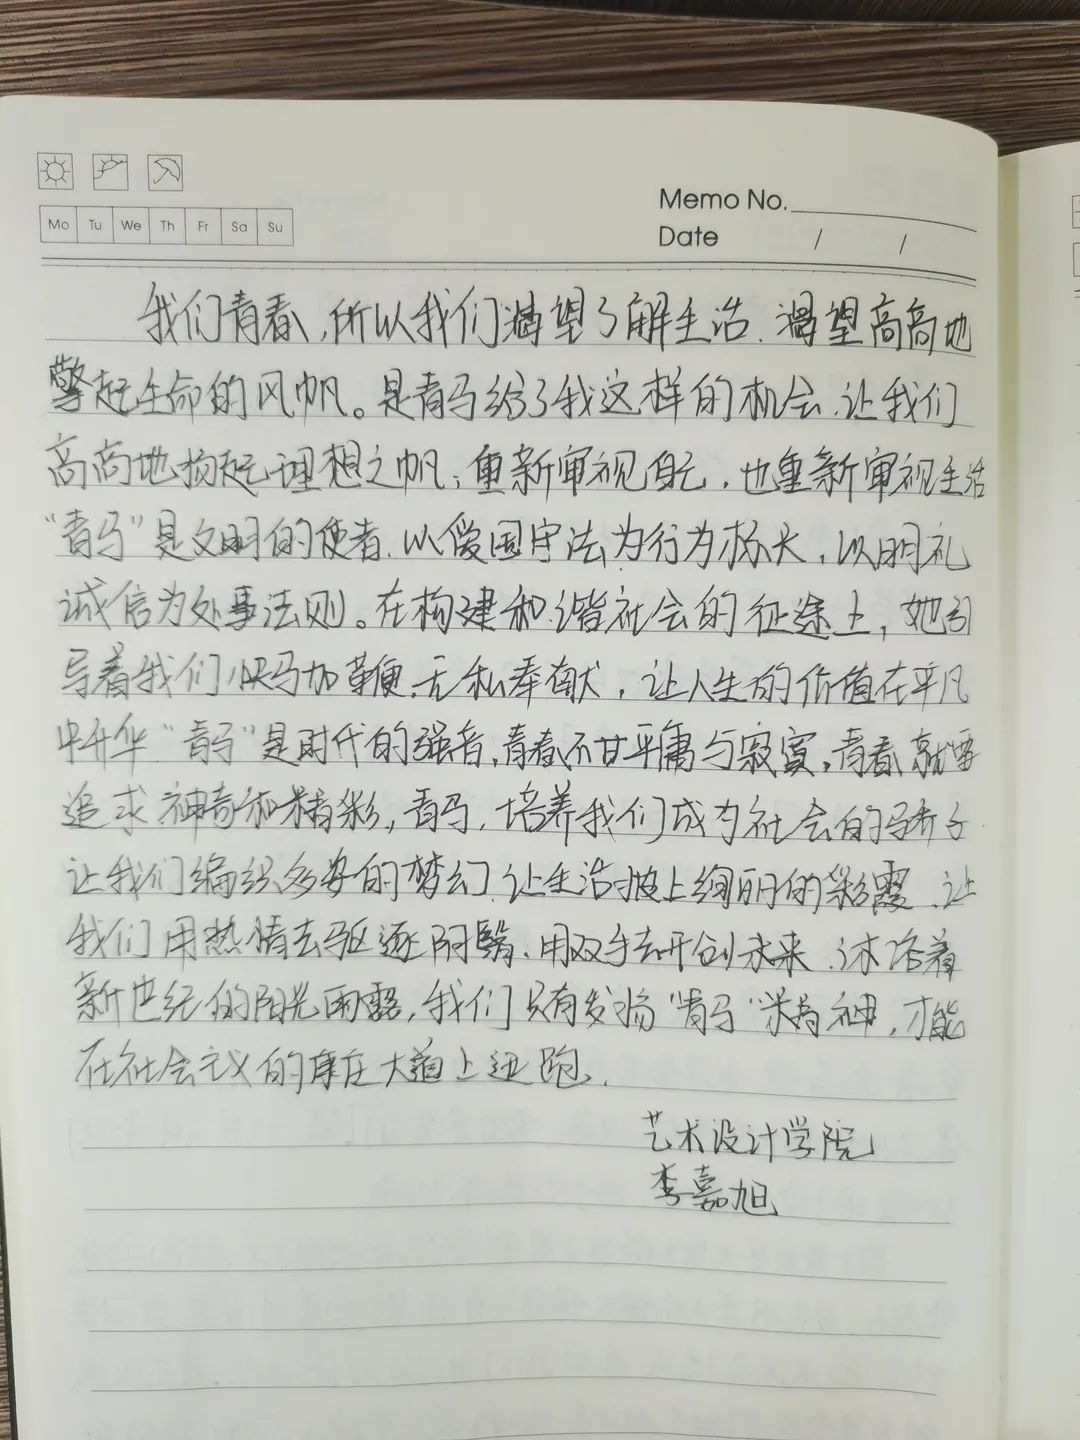 Memo No.
Date / /
Mo Tu We Th Fr Sa Su
我们青春,所以我们渴望了解生活.渴望高高地
擎起生命的风帆。是青马给了我这样的机会.让我们
高高地扬起理想之帆;重新审视自己,也重新审视生活
“青马”是文明的使者.以爱国守法为行为标尺,以明礼
诚信为处事法则。在构建和谐社会的征途上,她引
导着我们快马加鞭.无私奉献,让人生的价值在平凡
中升华“青马”是时代的强音,青春不甘平庸与寂寞,青春就要
追求神奇和精彩,青马,培养我们成为社会的骄子
让我们编织多姿的梦幻.让生活披上绚丽的彩霞.让
我们用热情去驱逐阴翳.用双手去开创未来.沐浴着
新世纪的阳光雨露,我们只有发扬“青马”精神,才能
在社会主义的康庄大道上迅跑.
艺术设计学院
李嘉旭